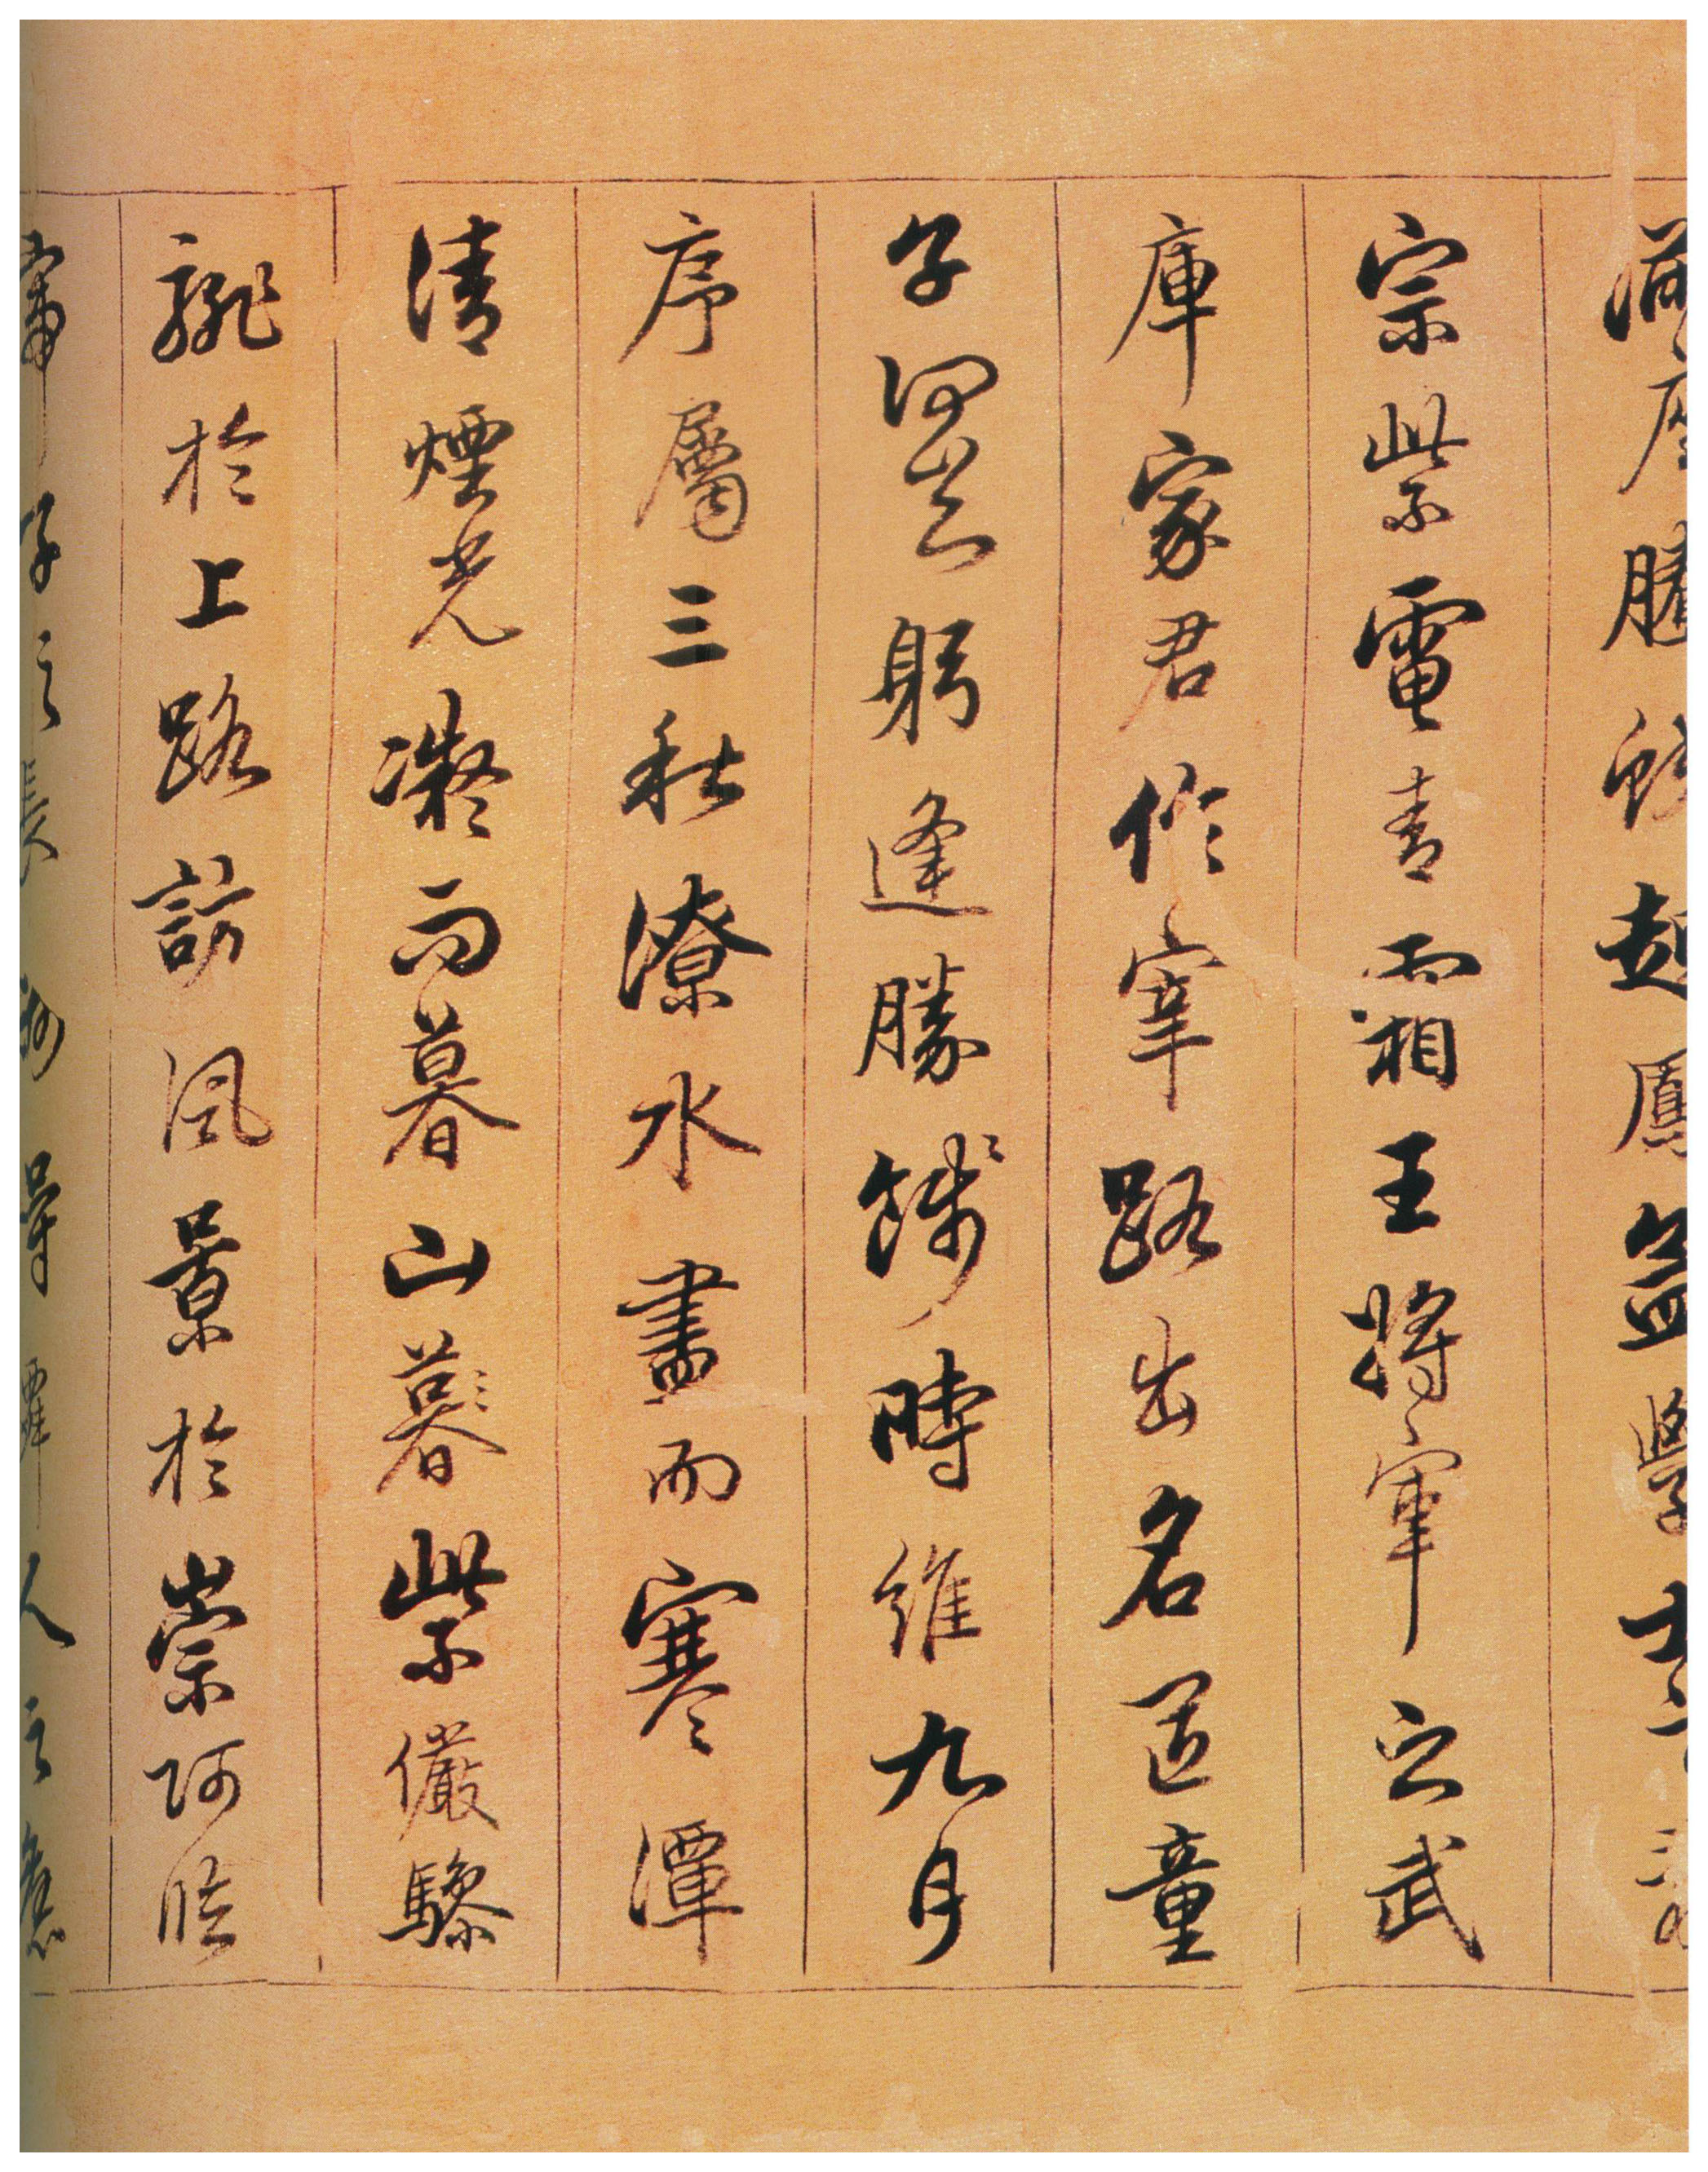 滿座騰蛟起鳳孟學士之詞
宗紫電青霜王將軍之武
庫家君作宰路出名區童
子何躬逢勝餞時維九月
序屬三秋潦水盡而寒潭
清煙光凝而暮山暮紫儼驂
騑於上路訪風景於崇阿臨
帝子之長洲得人之舊